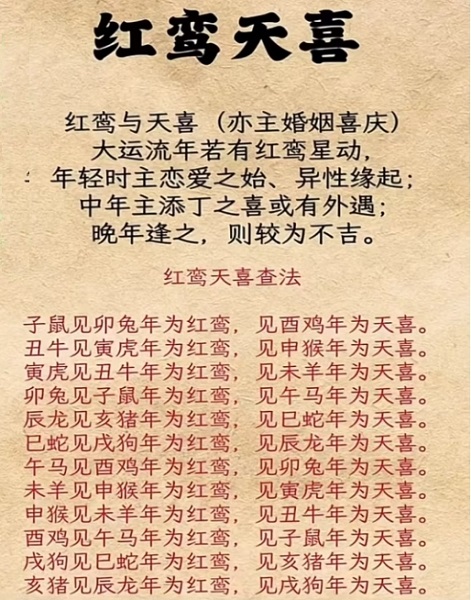 红鸾天喜
红鸾与天喜（亦主婚姻喜庆）
大运流年若有红鸾星动，
年轻时主恋爱之始、异性缘起；
中年主添丁之喜或有外遇；
晚年逢之，则较为不吉。
红鸾天喜查法
子鼠见卯兔年为红鸾，见酉鸡年为天喜。
丑牛见寅虎年为红鸾，见申猴年为天喜。
寅虎见丑牛年为红鸾，见未羊年为天喜。
卯兔见子鼠年为红鸾，见午马年为天喜。
辰龙见亥猪年为红鸾，见巳蛇年为天喜。
巳蛇见戌狗年为红鸾，见辰龙年为天喜。
午马见酉鸡年为红鸾，见卯兔年为天喜。
未羊见申猴年为红鸾，见寅虎年为天喜。
申猴见未羊年为红鸾，见丑牛年为天喜。
酉鸡见午马年为红鸾，见子鼠年为天喜。
戌狗见巳蛇年为红鸾，见亥猪年为天喜。
亥猪见辰龙年为红鸾，见戌狗年为天喜。